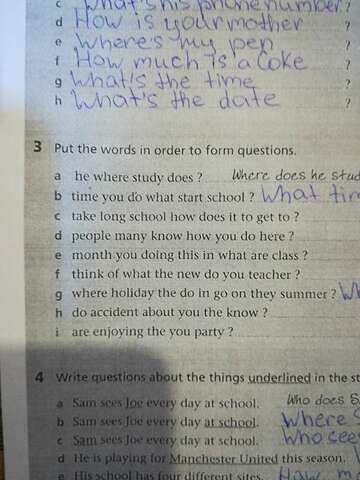 c What's his phone number?
d How is your mother ?
e Where's my pen ?
f How much is a Coke ?
g What's the time ?
h What's the date ?
3 Put the words in order to form questions.
a he where study does ? Where does he stud
b time you do what start school ? What tim
c take long school how does it to get to ?
d people many know how you do here ?
e month you doing this in what are class ?
f think of what the new do you teacher ?
g where holiday the do in go on they summer ? Wh
h do accident about you the know ?
i are enjoying the you party ?
4 Write questions about the things underlined in the st
a Sam sees Joe every day at school. Who does S
b Sam sees Joe every day at school. Where S
c Sam sees Joe every day at school. Who sees
d He is playing for Manchester United this season.
e His school has four different sites. How m